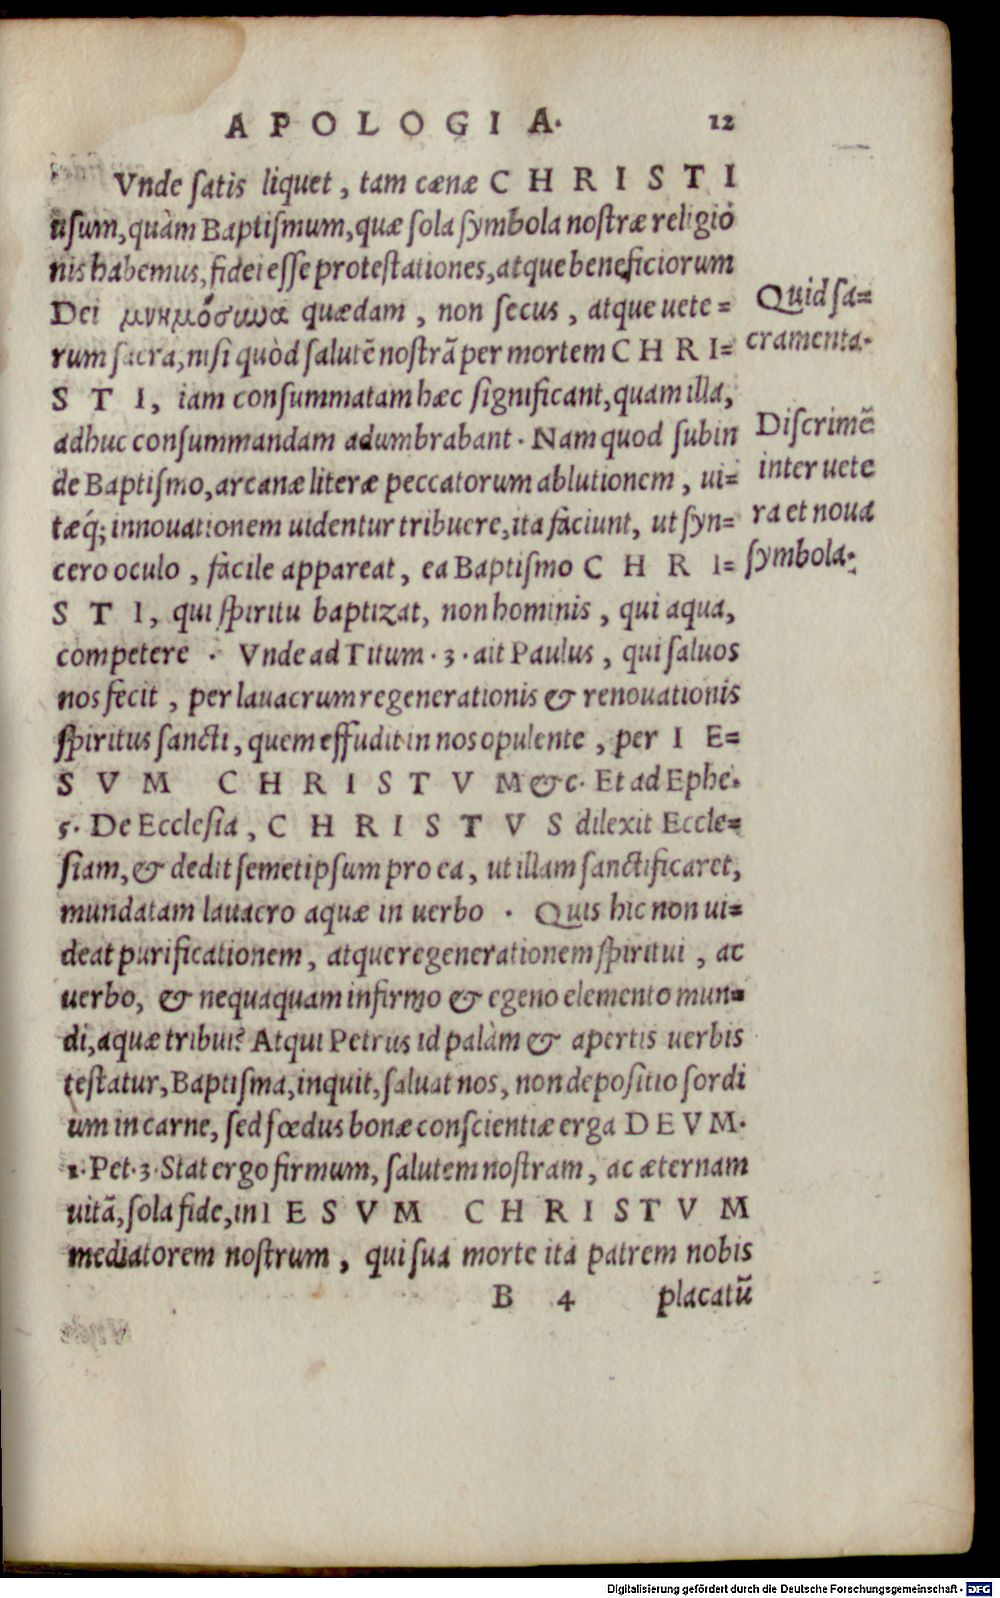 APOLOGIA. 12
Vnde satis liquet, tam cænæ CHRISTI
usum, quàm Baptismum, quæ sola symbola nostræ religió
nis habemus, fidei esse protestationes, atque beneficiorum
Dei μνημόσυνα quædam, non secus, atque uete=
rum sacra, nisi quòd salutē nostrā per mortem CHRI=
STI, iam consummatam hæc significant, quam illa,
adhuc consummandam adumbrabant. Nam quod subin
de Baptismo, arcanæ literæ peccatorum ablutionem, ui=
tæq́; innouationem uidentur tribuere, ita faciunt, ut syn=
cero oculo, facile appareat, ea Baptismo CHRI=
STI, qui spiritu baptizat, non hominis, qui aqua,
competere. Vnde ad Titum. 3. ait Paulus, qui saluos
nos fecit, per lauacrum regenerationis & renouationis
spiritus sancti, quem effudit in nos opulente, per IE=
SVM CHRISTVM &c. Et ad Ephe.
5. De Ecclesia, CHRISTVS dilexit Eccle=
siam, & dedit semetipsum pro ea, ut illam sanctificaret,
mundatam lauacro aquæ in uerbo. Quis hic non ui=
deat purificationem, atque regenerationem spiritui, ac
uerbo, & nequaquam infirmo & egeno elemento mun=
di, aquæ tribui? Atqui Petrus id palàm & apertis uerbis
testatur, Baptisma, inquit, saluat nos, non depositio sordi
um in carne, sed fœdus bonæ conscientiæ erga DEVM.
1. Pet. 3. Stat ergo firmum, salutem nostram, ac æternam
uitā, sola fide, in IESVM CHRISTVM
mediatorem nostrum, qui sua morte ita patrem nobis
B 4 placatū
Quid sa=
cramenta.
Discrimē
inter uete
ra et noua
symbola.
Digitalisierung gefördert durch die Deutsche Forschungsgemeinschaft - DFG